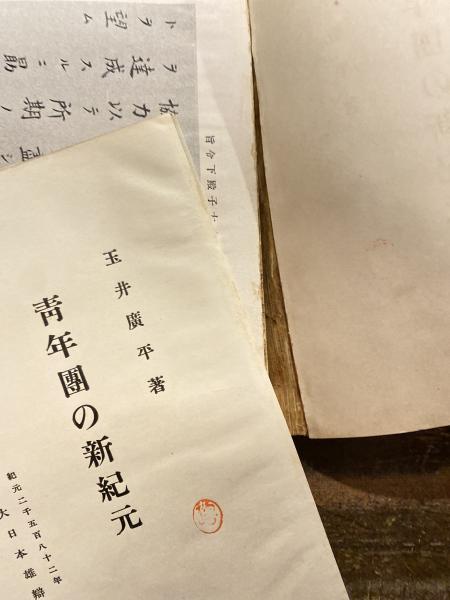 玉井廣平著
青年團の新紀元
紀元二千五百八十二年
大日本雄辯
協力以テ所期ノ
ヲ達成スルニ勗
トヲ望ム
子殿下令旨